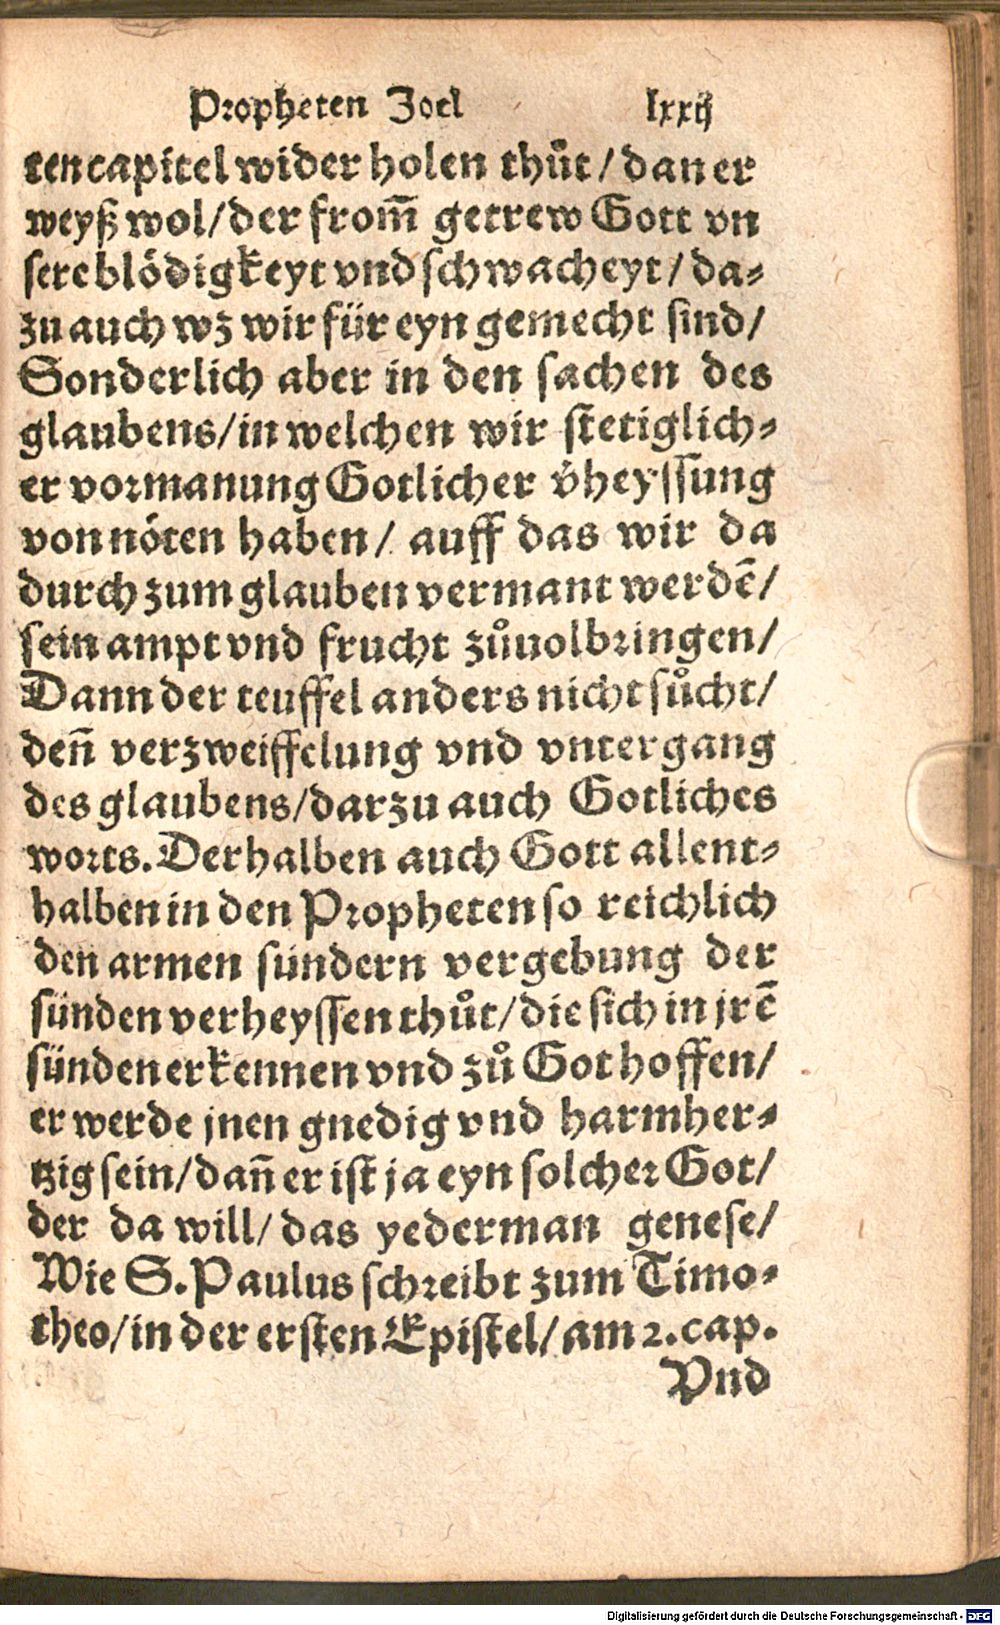 Propheten Joel lxxij
ten capitel wider holen thůt / dan er
weyß wol / der from̃ getrew Gott vn
sere blödigkeyt vnd schwacheyt / da⸗
zu auch wz wir für eyn gemecht sind /
Sonderlich aber in den sachen des
glaubens / in welchen wir stetiglich⸗
er vormanung Gotlicher v̉heyssung
von nöten haben / auff das wir da
durch zum glauben vermant werdẽ /
sein ampt vnd frucht zůuolbringen /
Dann der teuffel anders nicht sůcht /
deñ verzweiffelung vnd vntergang
des glaubens / darzu auch Gotliches
worts. Derhalben auch Gott allent⸗
halben in den Propheten so reichlich
den armen sündern vergebung der
sünden verheyssen thůt / die sich in jrẽ
sünden erkennen vnd zů Got hoffen /
er werde jnen gnedig vnd harmher⸗
tzig sein / dañ er ist ja eyn solcher Got /
der da will / das yederman genese /
Wie S. Paulus schreibt zum Timo⸗
theo / in der ersten Epistel / am 2. cap.
Vnd
Digitalisierung gefördert durch die Deutsche Forschungsgemeinschaft - DFG